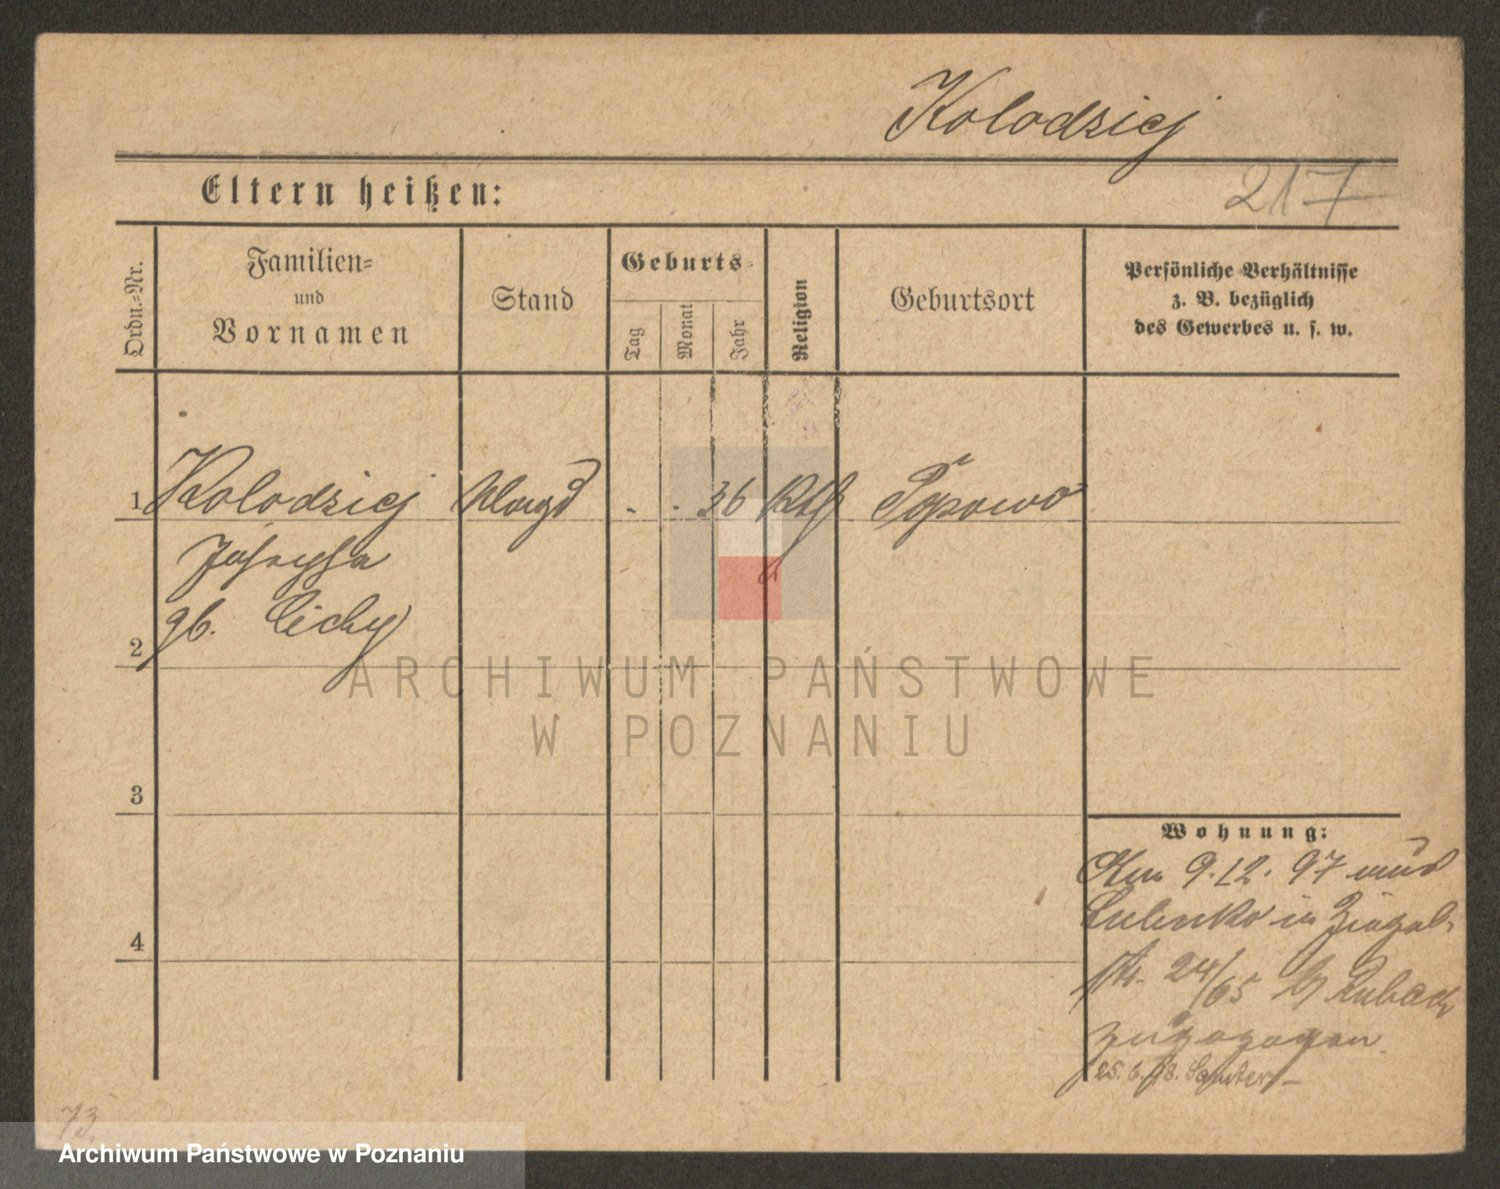 Kolodziej
Eltern heißen:
217
Ordn.=Nr.
Familien=
und
Vornamen
Stand
Geburts=
Tag
Monat
Jahr
Religion
Geburtsort
Persönliche Verhältnisse
z. B. bezüglich
des Gewerbes u. s. w.
1 Kolodziej Magd . . 36 Kth Popowo
Josepha
gb. Cichy
2
ARCHIWUM PAŃSTWOWE
W POZNANIU
3
Wohnung:
9.12.97
Lulenko in Ziegel-
4
str. 24/65 Rubach
zugezogen
25. 6. 98. Samter
73.
Archiwum Państwowe w Poznaniu